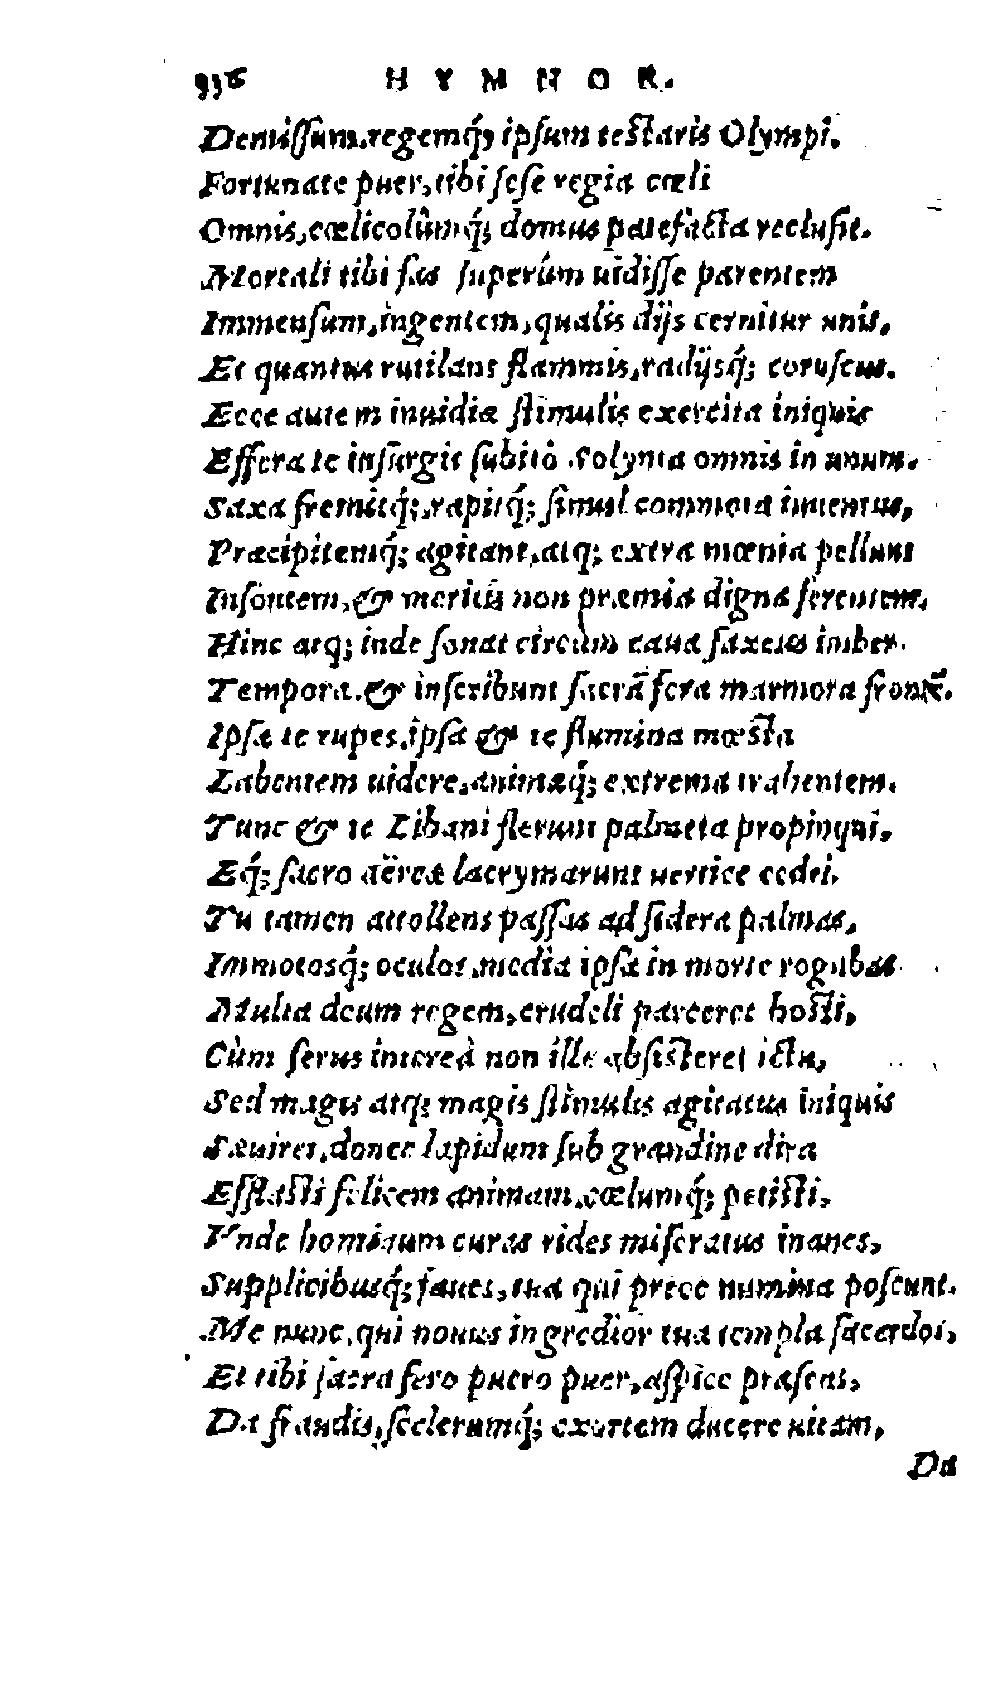 336 HYMNOR.
Demissum, regemq́; ipsum testaris Olympi.
Fortunate puer, tibi sese regia cœli
Omnis, cœlicolûmq́; domus patefacta reclusit.
Mortali tibi fas superûm uidisse parentem
Immensum, ingentem, qualis dijs cernitur unis,
Et quantus rutilans flammis, radijsq́; coruscus.
Ecce autem inuidiæ stimulis exercita iniquis
Effera te insurgit subitò Solyma omnis in unum.
Saxa fremitq́;, rapitq́; simul commota iuuentus,
Præcipitemq́; agitant, atq; extra mœnia pellunt
Insontem, & meritis non præmia digna ferentem.
Hinc atq; inde sonat circum caua saxeus imber
Tempora, & inscribunt sacrã fera marmora frontẽ.
Ipsæ te rupes, ipsa & te flumina mœsta
Labentem uidere, animæq́; extrema trahentem.
Tunc & te Libani flerunt palmeta propinqui,
Eq́; sacro aëreæ lacrymarunt uertice cedri.
Tu tamen attollens passas ad sidera palmas,
Immotosq́; oculos, media ipsa in morte rogabas
Multa deum regem, crudeli parceret hosti,
Cùm ferus intereà non ille absisteret ictu,
Sed magis atq; magis stimulis agitatus iniquis
Sæuiret, donec lapidum sub grandine dira
Efflasti felicem animam, cœlumq́; petisti,
Vnde hominum curas rides miseratus inanes,
Supplicibusq́; faues, tua qui prece numina poscunt.
Me nunc, qui nouus ingredior tua templa sacerdos,
Et tibi sacra fero puero puer, aspice præsens,
Da fraudis, scelerumq́; exortem ducere uitam,
Da